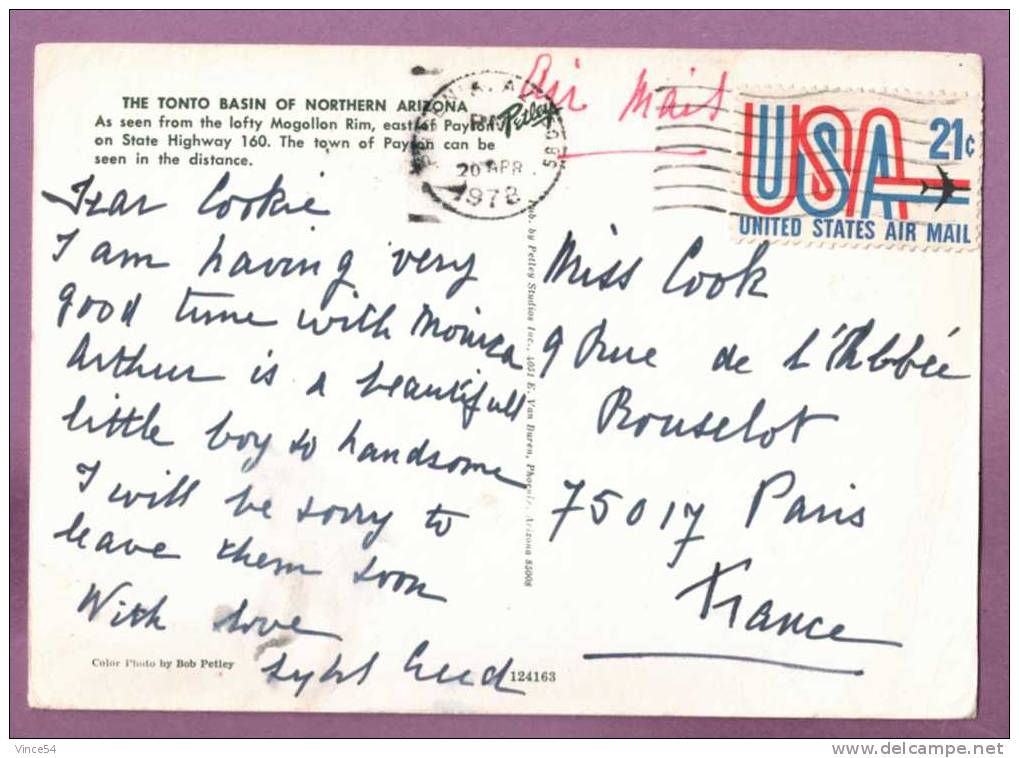 THE TONTO BASIN OF NORTHERN ARIZONA
As seen from the lofty Mogollon Rim, east of Payson
on State Highway 160. The town of Payson can be
seen in the distance.
Petley
Air Mail
PM
20 APR
1972
USA 21¢
UNITED STATES AIR MAIL
Dear Cookie
I am having very
good time with Monica
Arthur is a beautifull
little boy so handsome
I will be sorry to
leave them soon
With love
Sybil
Pub. by Petley Studios Inc., 4051 E. Van Buren, Phoenix, Arizona 85008
Miss Cook
9 Rue de l'Abbée
Rouselot
75017 Paris
France
Color Photo by Bob Petley
124163
Vince54
www.delcampe.net